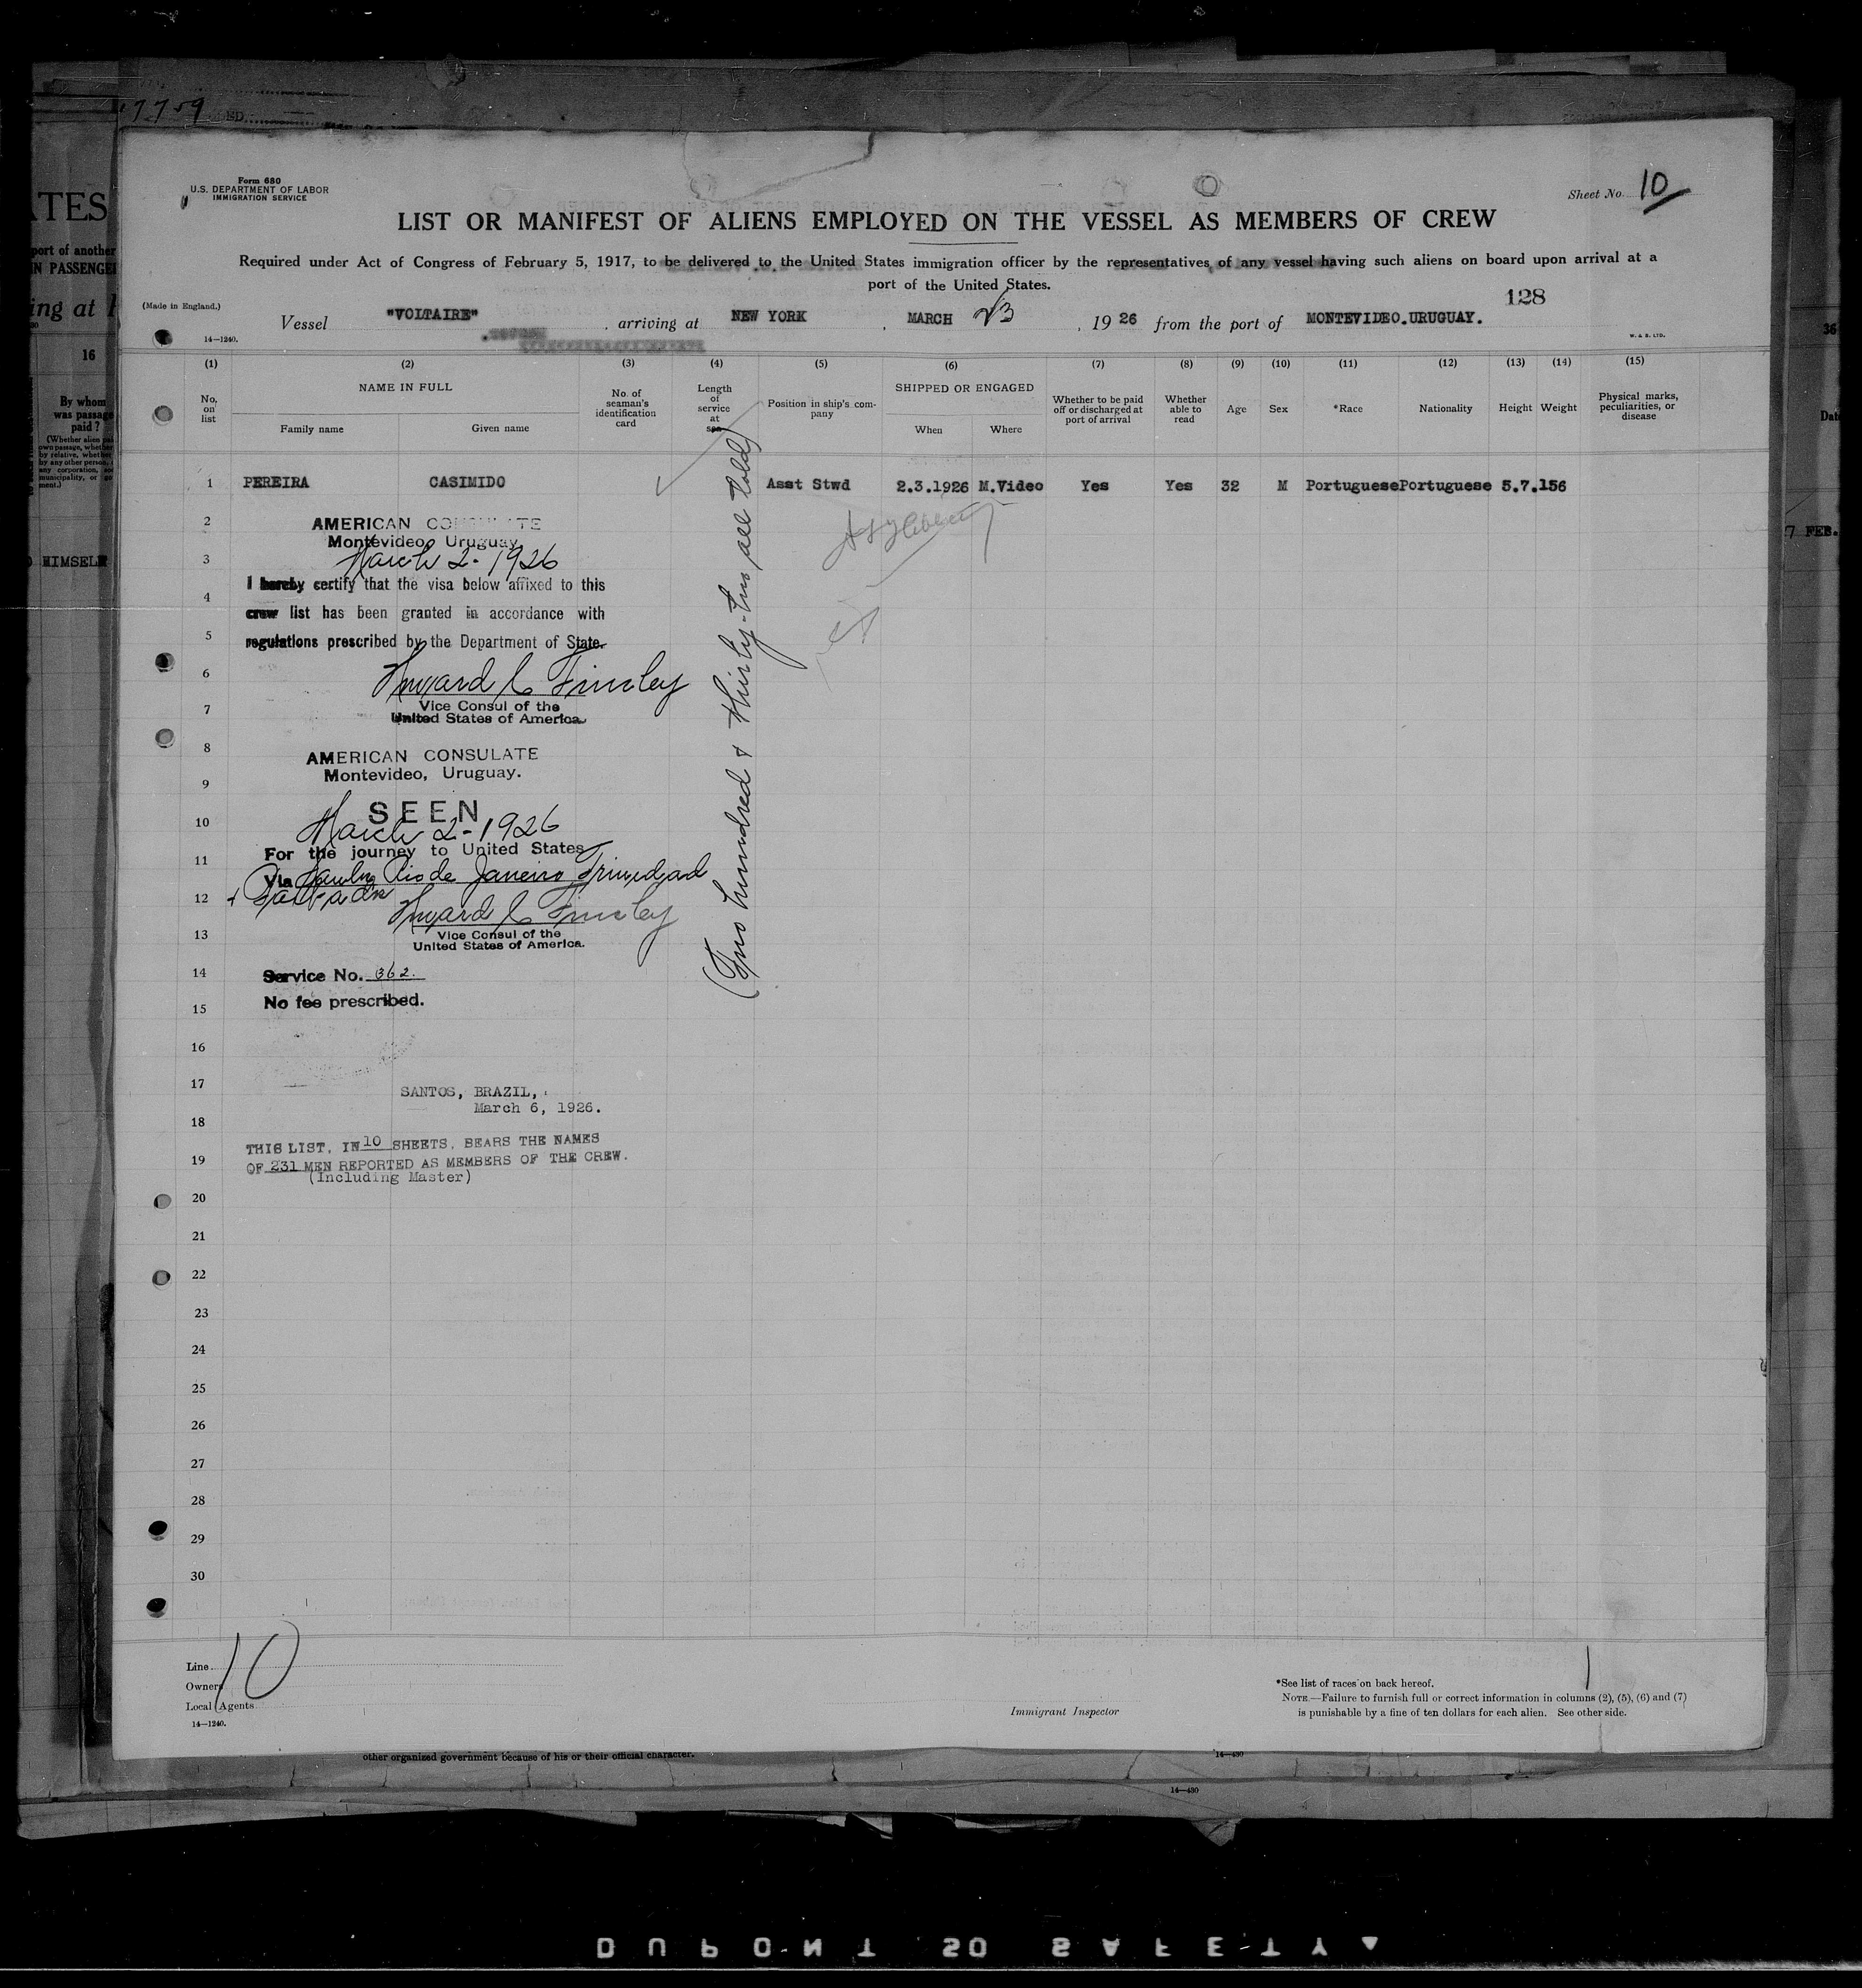 7759
ED
ATES
port of another
IN PASSENGE
ing at
16
By whom
was passage
paid?
HIMSELF
Form 680
U.S. DEPARTMENT OF LABOR
IMMIGRATION SERVICE
Sheet No. 10
LIST OR MANIFEST OF ALIENS EMPLOYED ON THE VESSEL AS MEMBERS OF CREW
Required under Act of Congress of February 5, 1917, to be delivered to the United States immigration officer by the representatives of any vessel having such aliens on board upon arrival at a
port of the United States.
128
(Made in England.)
Vessel "VOLTAIRE", arriving at NEW YORK, MARCH 23, 1926 from the port of MONTEVIDEO.URUGUAY.
14—1240.
W. & S. LTD.
(1) (2) (3) (4) (5) (6) (7) (8) (9) (10) (11) (12) (13) (14) (15)
No. on list
NAME IN FULL
Family name Given name
No. of seaman's identification card
Length of service at sea
Position in ship's company
SHIPPED OR ENGAGED
When Where
Whether to be paid off or discharged at port of arrival
Whether able to read
Age Sex *Race Nationality Height Weight
Physical marks, peculiarities, or disease
1 PEREIRA CASIMIDO Asst Stwd 2.3.1926 M.Video Yes Yes 32 M Portuguese Portuguese 5.7. 156
2
AMERICAN CONSULATE
Montevideo, Uruguay
3
March 2-1926
I hereby certify that the visa below affixed to this
4
crew list has been granted in accordance with
5
regulations prescribed by the Department of State.
6
Howard C Finsley
7
Vice Consul of the
United States of America.
8
AMERICAN CONSULATE
Montevideo, Uruguay.
9
SEEN
10
March 2-1926
For the journey to United States
11
Via Santos Rio de Janeiro Trinidad
12
+ Barbados
13
Vice Consul of the
United States of America.
14
Service No. 362.
No fee prescribed.
15
(Two hundred & thirty-two all told)
16
17
SANTOS, BRAZIL,
March 6, 1926.
18
THIS LIST, IN 10 SHEETS, BEARS THE NAMES
19
OF 231 MEN REPORTED AS MEMBERS OF THE CREW.
(Including Master)
20
21
22
23
24
25
26
27
28
29
30
10
Line
Owners
Local Agents
14—1240.
Immigrant Inspector
1
*See list of races on back hereof.
NOTE.—Failure to furnish full or correct information in columns (2), (5), (6) and (7)
is punishable by a fine of ten dollars for each alien. See other side.
other organized government because of his or their official character.
14—430
14—430
36
Dat
7 FEB.
DUPONT SO SAFETY